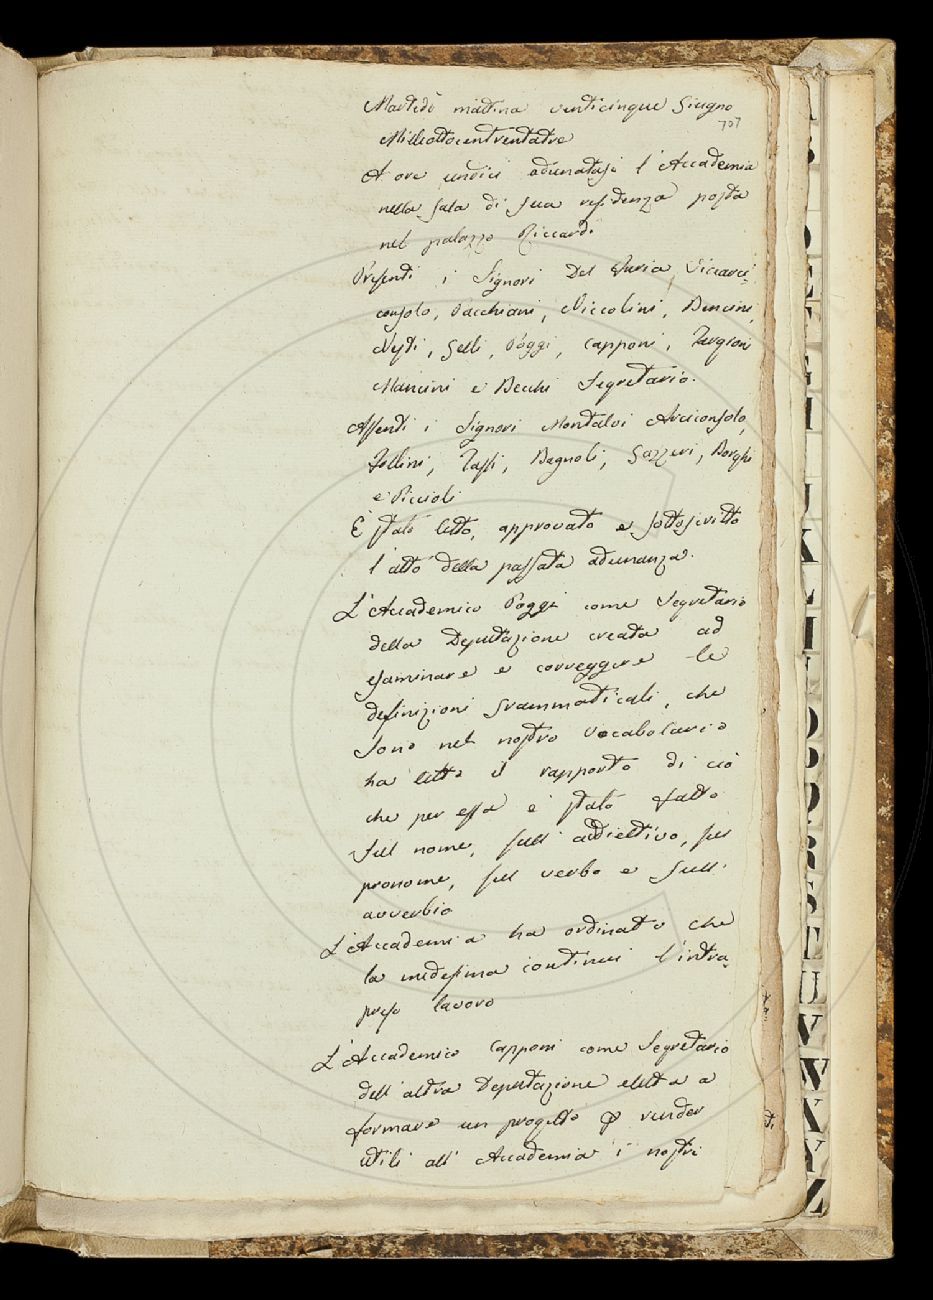 Martedì mattina venticinque Giugno
707
Milleottocentrentatre
A ore undici adunatasi l'Accademia
nella sala di sua residenza posta
nel palazzo Riccardi
Presenti i Signori Del Furia, Vicearci-
consolo, Pacchiani, Niccolini, Bencini,
Nesti, Gelli, Poggi, Capponi, Targioni
Mancini e Becchi Segretario.
Assenti i Signori Montalvi Arciconsolo,
Follini, Tassi, Bagnoli, Gazzeri, Borghi
e Piccioli
È stato letto, approvato e sottoscritto
l'atto della passata adunanza.
L'Accademico Poggi come Segretario
della Deputazione creata ad
esaminare e correggere le
definizioni grammaticali, che
sono nel nostro vocabolario
ha letto il rapporto di ciò
che per essa è stato fatto
sul nome, sull'addiettivo, sul
pronome, sul verbo e sull'
avverbio
L'Accademia ha ordinato che
la medesima continui l'intra-
preso lavoro
L'Accademico Capponi come Segretario
dell'altra Deputazione eletta a
formare un progetto ꝑ render
utili all'Accademia i nostri
B
D
E
F
G
H
IJ
K
L
M
N
O
P
Q
R
S
T
U
V
W
X
Y
Z